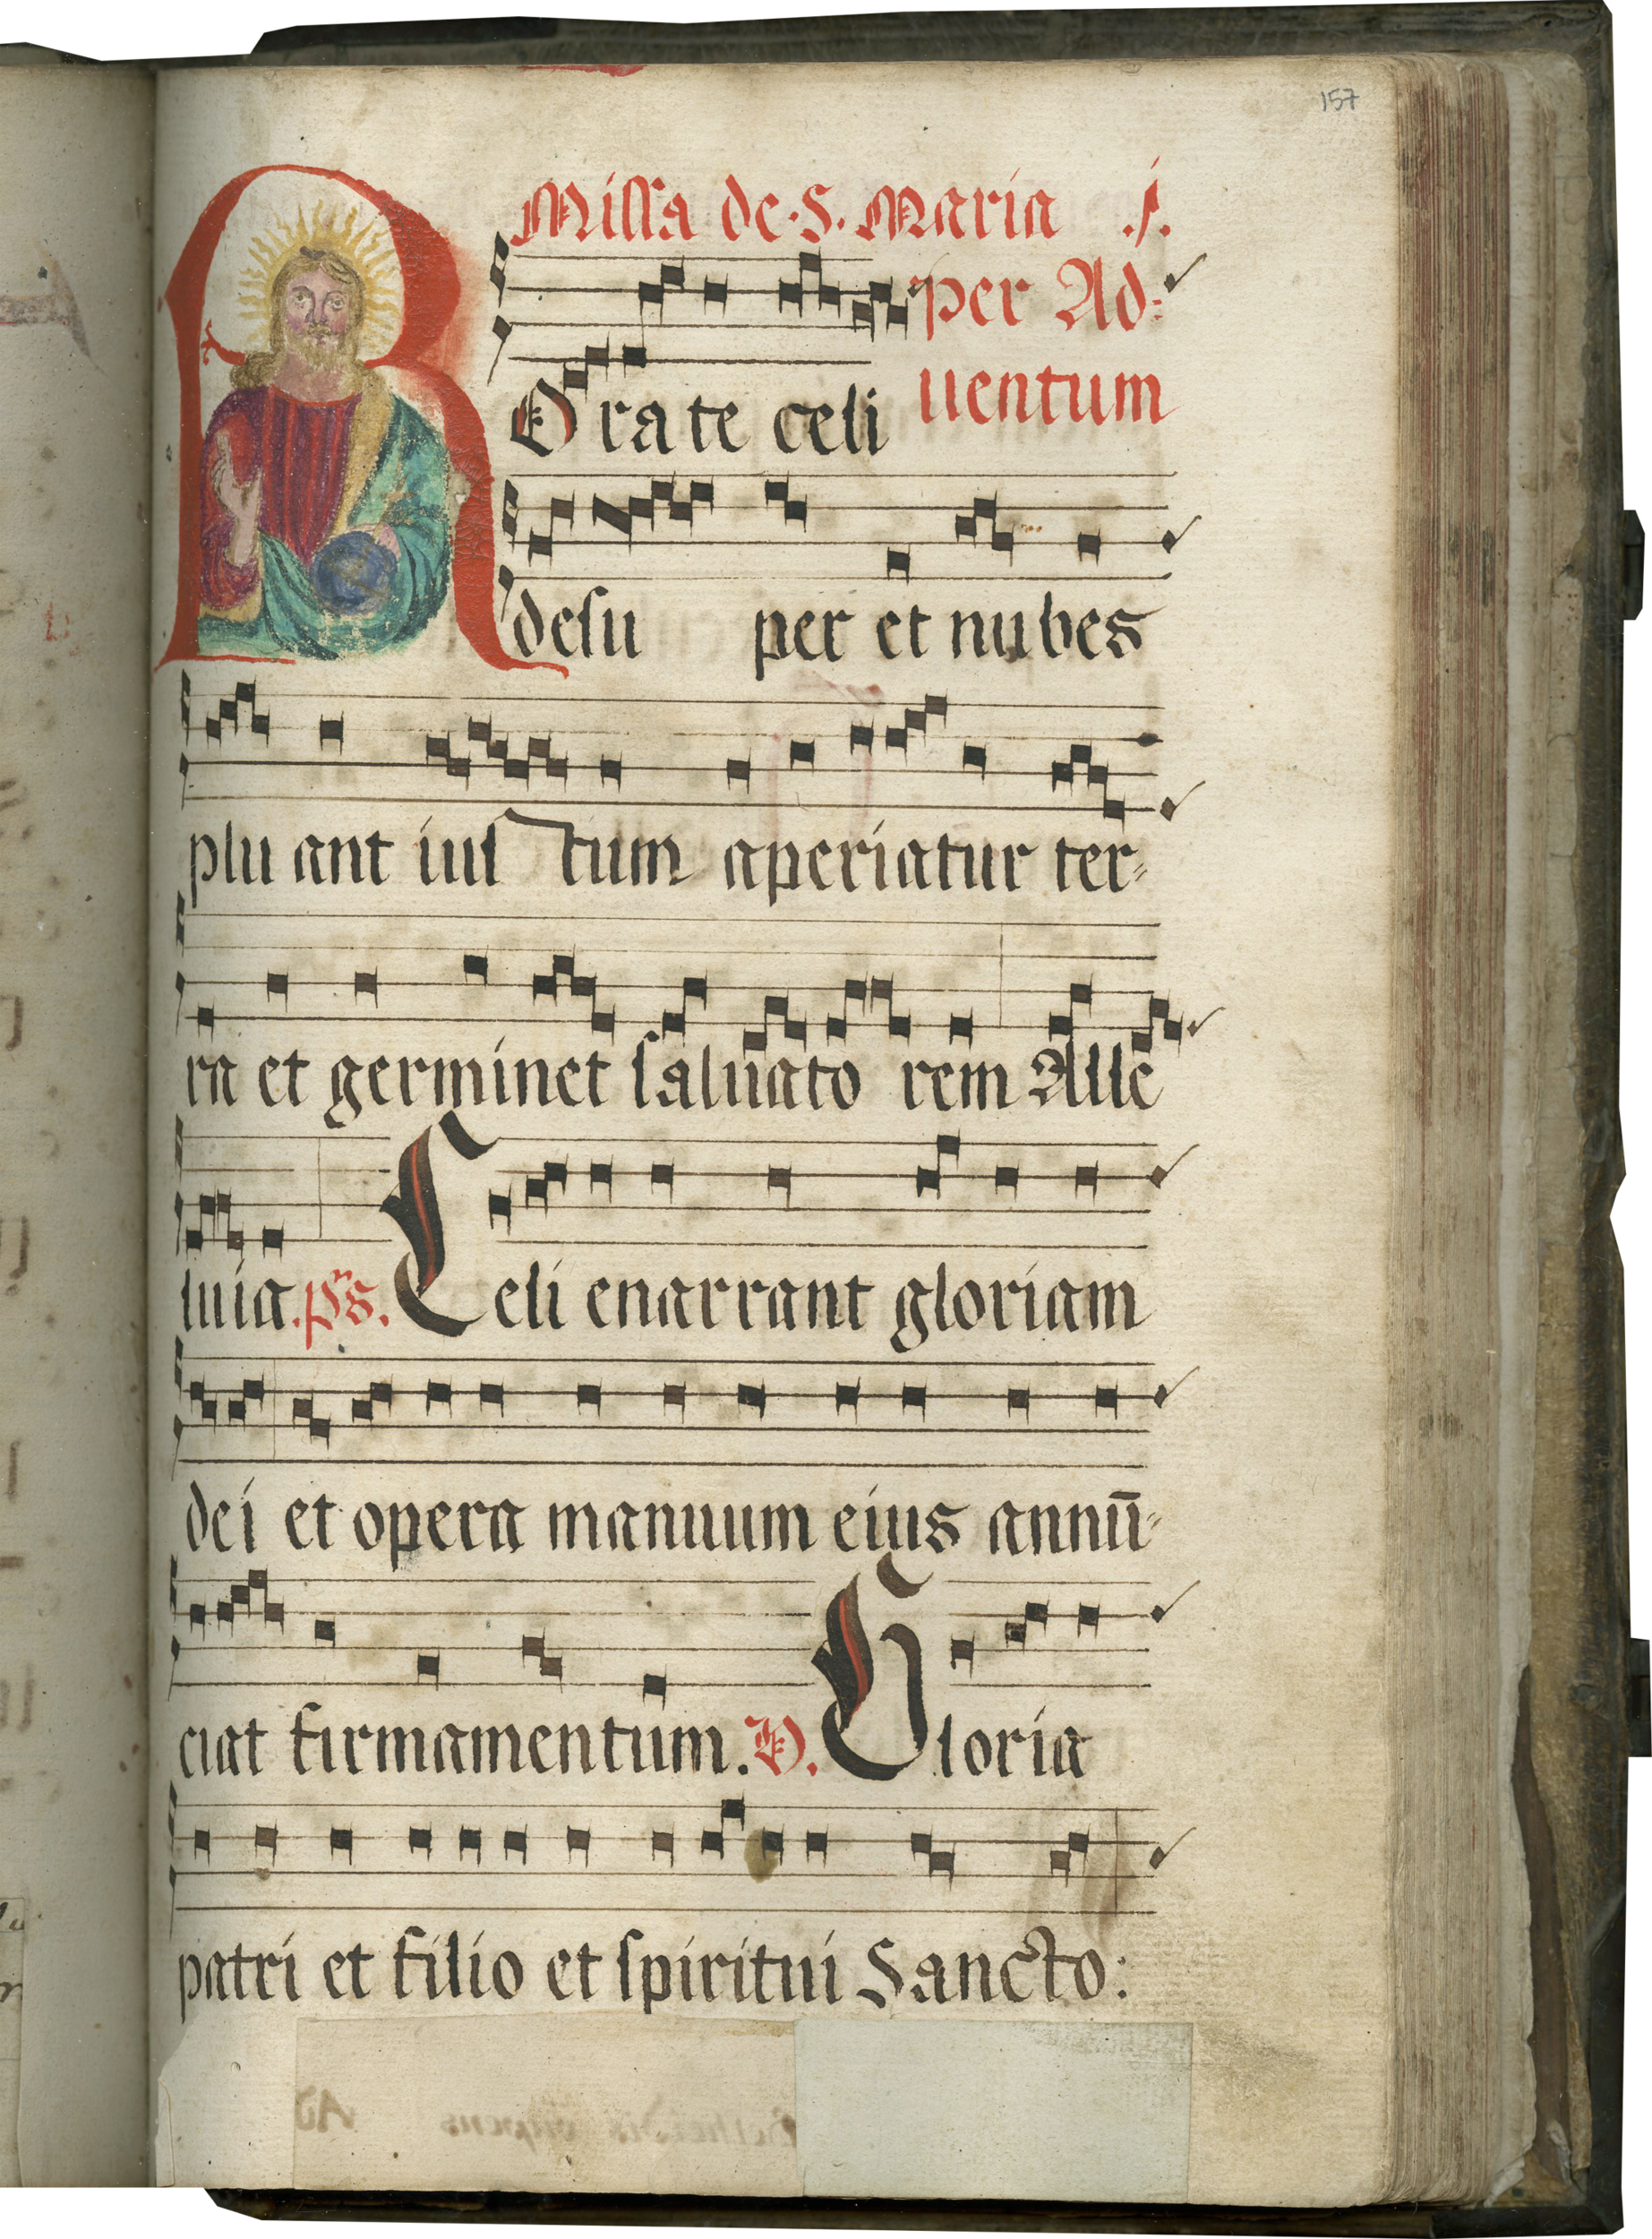 157
Missa de·S. Maria .j.
per Ad=
uentum
ROrate celi
desu per et nubes
plu ant iustum aperiatur ter=
ra et germinet saluato rem Alle
luia. ps. Celi enarrant gloriam
dei et opera manuum eius annū=
ciat firmamentum. V. Gloria
patri et filio et spiritui Sancto: